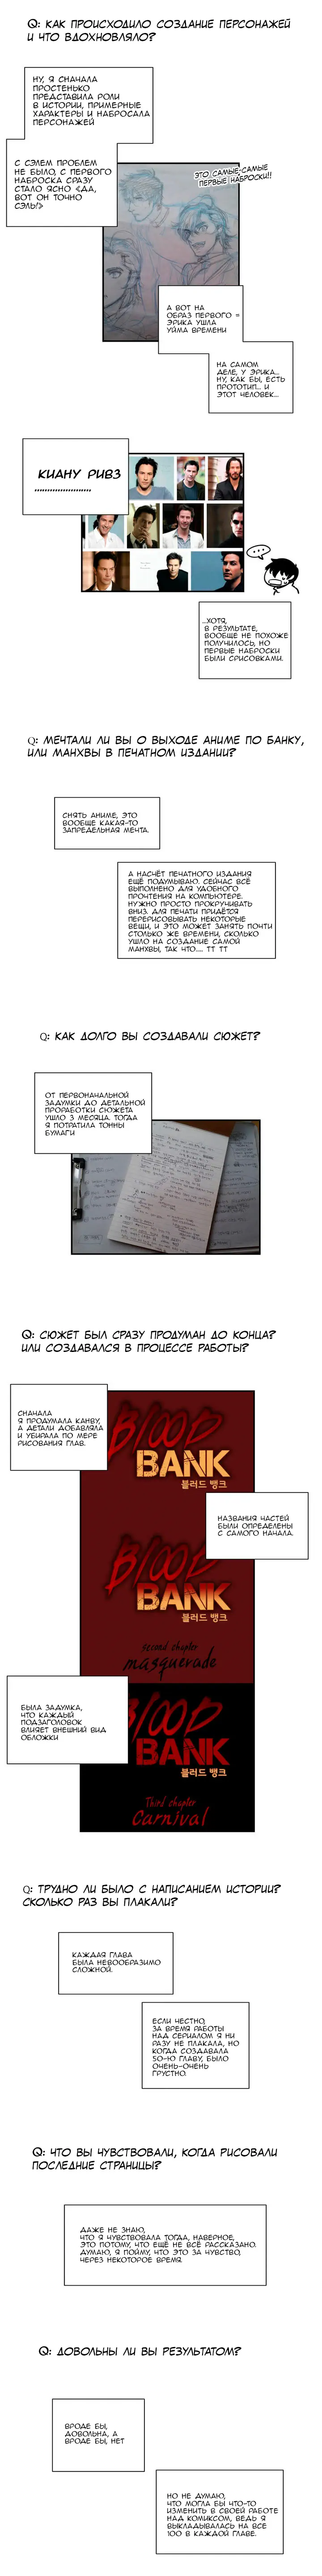 Q: КАК ПРОИСХОДИЛО СОЗДАНИЕ ПЕРСОНАЖЕЙ
И ЧТО ВДОХНОВЛЯЛО?
НУ, Я СНАЧАЛА
ПРОСТЕНЬКО
ПРЕДСТАВИЛА РОЛИ
В ИСТОРИИ, ПРИМЕРНЫЕ
ХАРАКТЕРЫ И НАБРОСАЛА
ПЕРСОНАЖЕЙ
С СЭЛЕМ ПРОБЛЕМ
НЕ БЫЛО, С ПЕРВОГО
НАБРОСКА СРАЗУ
СТАЛО ЯСНО «ДА,
ВОТ ОН ТОЧНО
СЭЛЬ!»
ЭТО САМЫЕ-САМЫЕ
ПЕРВЫЕ НАБРОСКИ!!
А ВОТ НА
ОБРАЗ ПЕРВОГО =
ЭРИКА УШЛА
УЙМА ВРЕМЕНИ
НА САМОМ
ДЕЛЕ, У ЭРИКА...
НУ, КАК БЫ, ЕСТЬ
ПРОТОТИП... И
ЭТОТ ЧЕЛОВЕК...
КИАНУ РИВЗ
......................
...
...ХОТЯ,
В РЕЗУЛЬТАТЕ,
ВООБЩЕ НЕ ПОХОЖЕ
ПОЛУЧИЛОСЬ, НО
ПЕРВЫЕ НАБРОСКИ
БЫЛИ СРИСОВКАМИ.
Q: МЕЧТАЛИ ЛИ ВЫ О ВЫХОДЕ АНИМЕ ПО БАНКУ,
ИЛИ МАНХВЫ В ПЕЧАТНОМ ИЗДАНИИ?
СНЯТЬ АНИМЕ, ЭТО
ВООБЩЕ КАКАЯ-ТО
ЗАПРЕДЕЛЬНАЯ МЕЧТА.
А НАСЧЁТ ПЕЧАТНОГО ИЗДАНИЯ
ЕЩЁ ПОДУМЫВАЮ. СЕЙЧАС ВСЁ
ВЫПОЛНЕНО ДЛЯ УДОБНОГО
ПРОЧТЕНИЯ НА КОМПЬЮТЕРЕ.
НУЖНО ПРОСТО ПРОКРУЧИВАТЬ
ВНИЗ. ДЛЯ ПЕЧАТИ ПРИДЁТСЯ
ПЕРЕРИСОВЫВАТЬ НЕКОТОРЫЕ
ВЕЩИ, И ЭТО МОЖЕТ ЗАНЯТЬ ПОЧТИ
СТОЛЬКО ЖЕ ВРЕМЕНИ, СКОЛЬКО
УШЛО НА СОЗДАНИЕ САМОЙ
МАНХВЫ, ТАК ЧТО..... ТТ ТТ
Q: КАК ДОЛГО ВЫ СОЗДАВАЛИ СЮЖЕТ?
ОТ ПЕРВОНАЧАЛЬНОЙ
ЗАДУМКИ ДО ДЕТАЛЬНОЙ
ПРОРАБОТКИ СЮЖЕТА
УШЛО 3 МЕСЯЦА. ТОГДА
Я ПОТРАТИЛА ТОННЫ
БУМАГИ
Q: СЮЖЕТ БЫЛ СРАЗУ ПРОДУМАН ДО КОНЦА?
ИЛИ СОЗДАВАЛСЯ В ПРОЦЕССЕ РАБОТЫ?
СНАЧАЛА
Я ПРОДУМАЛА КАНВУ,
А ДЕТАЛИ ДОБАВЛЯЛА
И УБИРАЛА ПО МЕРЕ
РИСОВАНИЯ ГЛАВ.
BLOOD
BANK
블러드 뱅크
НАЗВАНИЯ ЧАСТЕЙ
БЫЛИ ОПРЕДЕЛЕНЫ
С САМОГО НАЧАЛА.
BLOOD
BANK
블러드 뱅크
second chapter
masquerade
БЫЛА ЗАДУМКА,
ЧТО КАЖДЫЙ
ПОДЗАГОЛОВОК
ВЛИЯЕТ ВНЕШНИЙ ВИД
ОБЛОЖКИ
BLOOD
BANK
블러드 뱅크
Third chapter
Carnival
Q: ТРУДНО ЛИ БЫЛО С НАПИСАНИЕМ ИСТОРИИ?
СКОЛЬКО РАЗ ВЫ ПЛАКАЛИ?
КАЖДАЯ ГЛАВА
БЫЛА НЕВООБРАЗИМО
СЛОЖНОЙ.
ЕСЛИ ЧЕСТНО,
ЗА ВРЕМЯ РАБОТЫ
НАД СЕРИАЛОМ Я НИ
РАЗУ НЕ ПЛАКАЛА, НО
КОГДА СОЗДАВАЛА
50-Ю ГЛАВУ, БЫЛО
ОЧЕНЬ-ОЧЕНЬ
ГРУСТНО.
Q: ЧТО ВЫ ЧУВСТВОВАЛИ, КОГДА РИСОВАЛИ
ПОСЛЕДНИЕ СТРАНИЦЫ?
ДАЖЕ НЕ ЗНАЮ,
ЧТО Я ЧУВСТВОВАЛА ТОГДА, НАВЕРНОЕ,
ЭТО ПОТОМУ, ЧТО ЕЩЁ НЕ ВСЁ РАССКАЗАНО.
ДУМАЮ, Я ПОЙМУ, ЧТО ЭТО ЗА ЧУВСТВО,
ЧЕРЕЗ НЕКОТОРОЕ ВРЕМЯ.
Q: ДОВОЛЬНЫ ЛИ ВЫ РЕЗУЛЬТАТОМ?
ВРОДЕ БЫ,
ДОВОЛЬНА, А
ВРОДЕ БЫ, НЕТ
НО НЕ ДУМАЮ,
ЧТО МОГЛА БЫ ЧТО-ТО
ИЗМЕНИТЬ В СВОЕЙ РАБОТЕ
НАД КОМИКСОМ, ВЕДЬ Я
ВЫКЛАДЫВАЛАСЬ НА ВСЕ
100 В КАЖДОЙ ГЛАВЕ.